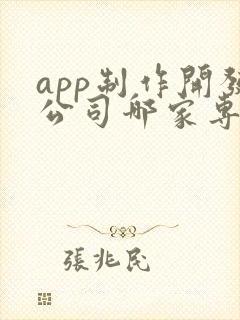 app制作開發
公司哪家專
張兆民